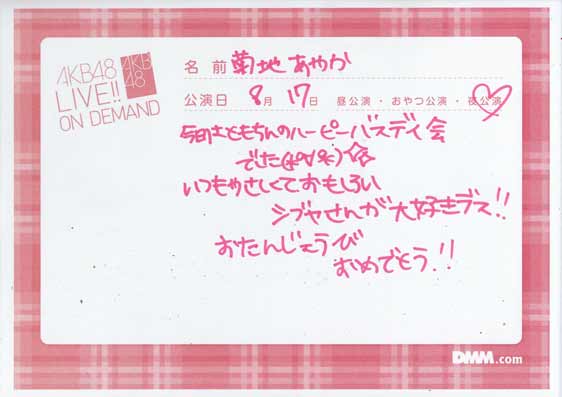 AKB48
LIVE!!
ON DEMAND
AKB
48
名前 菊地あやか
公演日 8月 17日 昼公演・おやつ公演・夜公演
今日はともちんのハーピーバスデイ会
でした
いつもやさしくておもしろい
シブヤさんが大好きデス!!
おたんじょうび
おめでとう!!
DMM.com